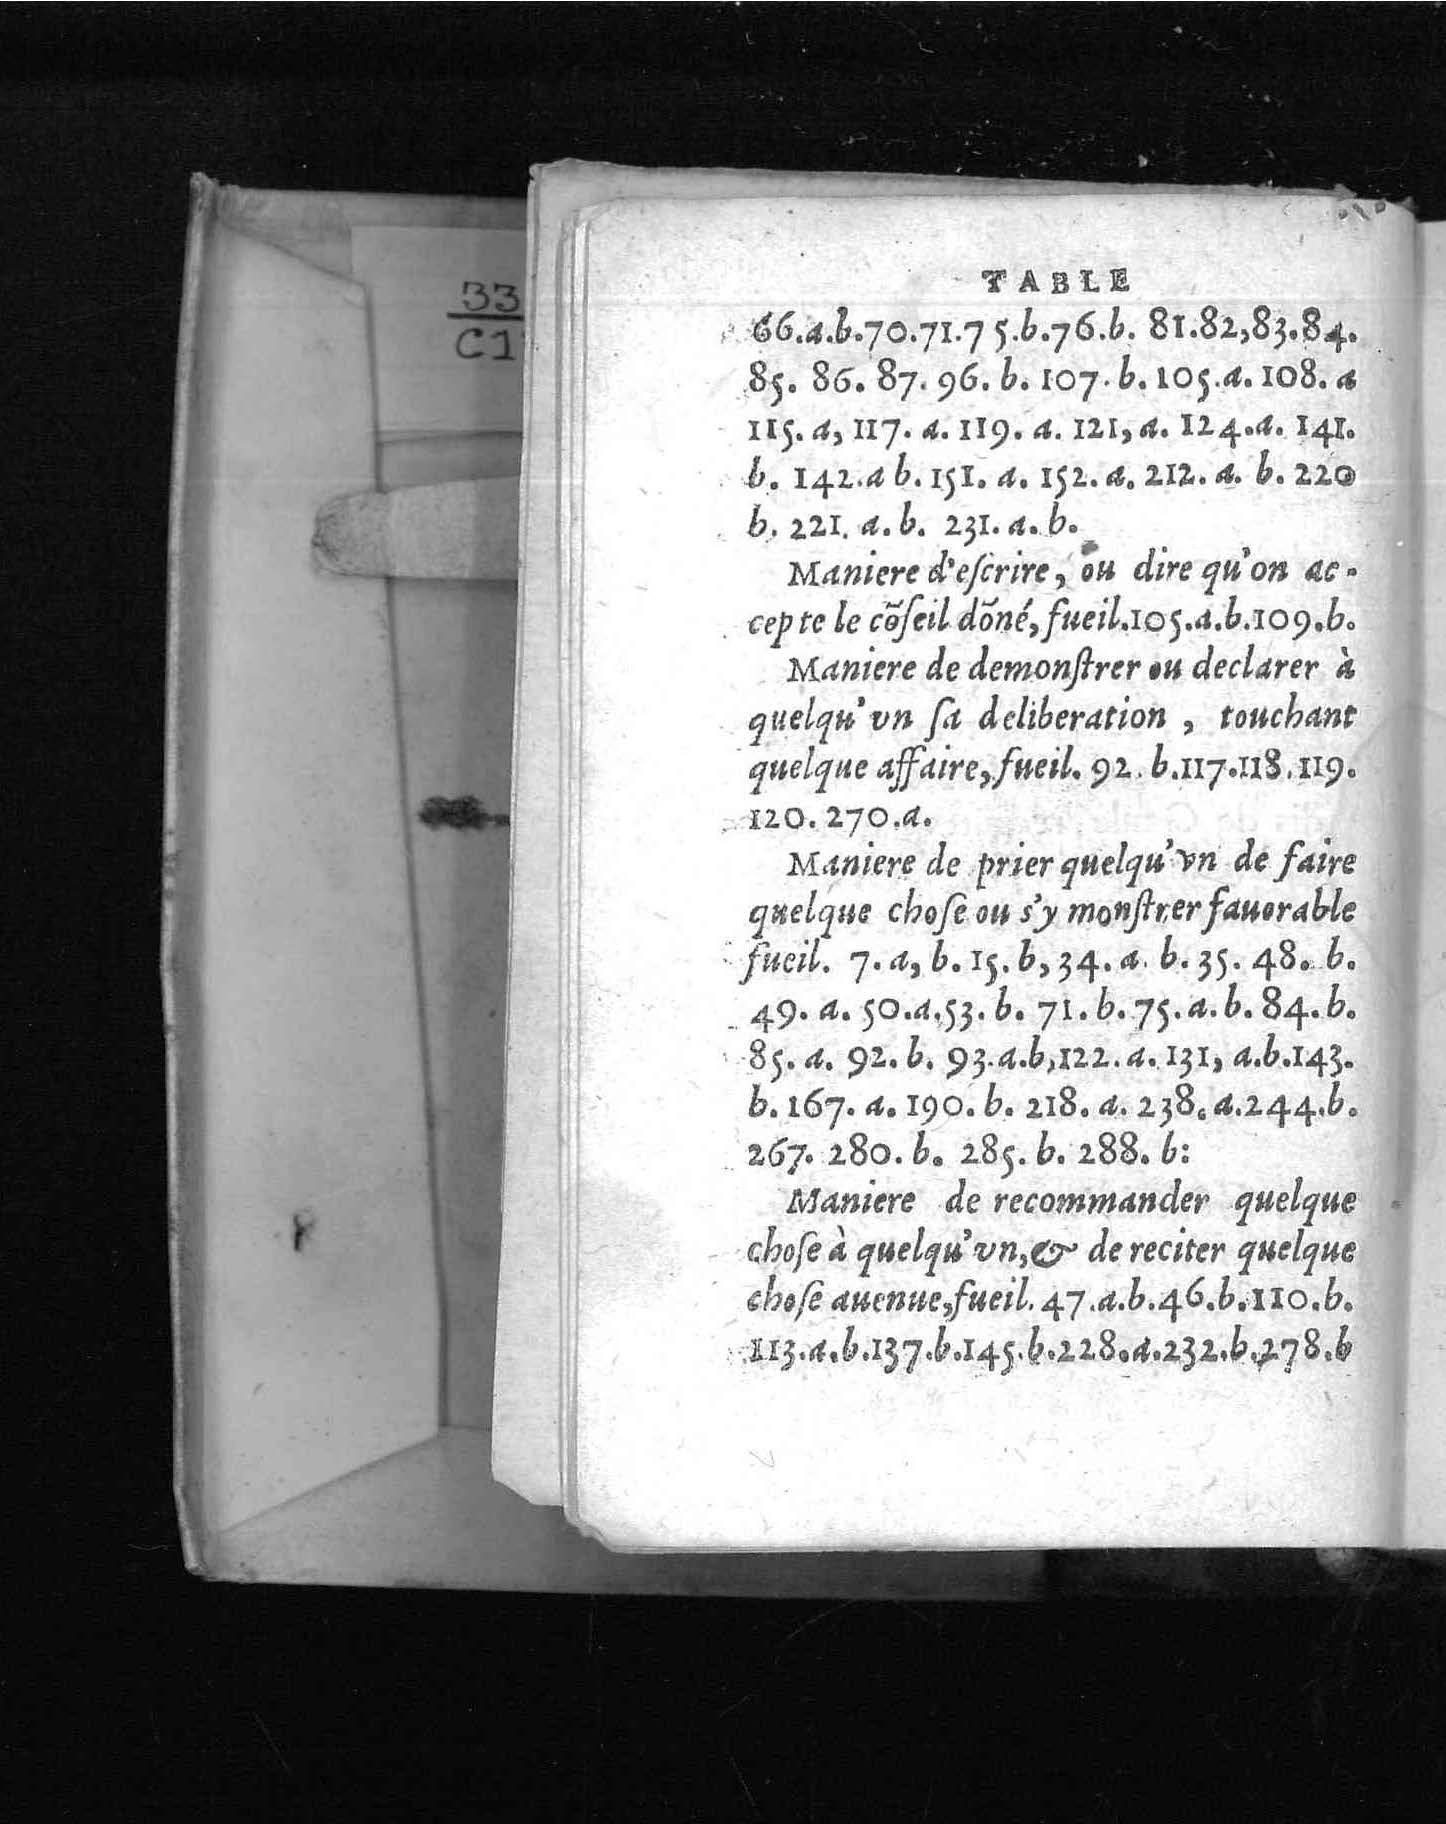 33
C1
TABLE
66.a.b.70.71.75.b.76.b. 81.82,83.84.
85. 86. 87. 96. b. 107. b. 105.a. 108. a
115. a, 117. a. 119. a. 121, a. 124.a. 141.
b. 142.a b. 151. a. 152. a. 212. a. b. 220
b. 221. a. b. 231. a. b.
Maniere d'eſcrire, ou dire qu'on ac-
cepte le cõſeil dõné, fueil.105.a.b.109.b.
Maniere de demonſtrer ou declarer à
quelqu'vn ſa deliberation, touchant
quelque affaire, fueil. 92. b.117.118.119.
120. 270.a.
Maniere de prier quelqu'vn de faire
quelque choſe ou s'y monſtrer fauorable
fueil. 7. a, b. 15. b, 34. a. b. 35. 48. b.
49. a. 50.a.53. b. 71. b. 75. a. b. 84. b.
85. a. 92. b. 93.a.b,122. a. 131, a.b.143.
b. 167. a. 190. b. 218. a. 238. a.244.b.
267. 280. b. 285. b. 288. b:
Maniere de recommander quelque
choſe à quelqu'vn, & de reciter quelque
choſe auenue, fueil. 47.a.b.46.b.110.b.
113.a.b.137.b.145.b.228.a.232.b.278.b